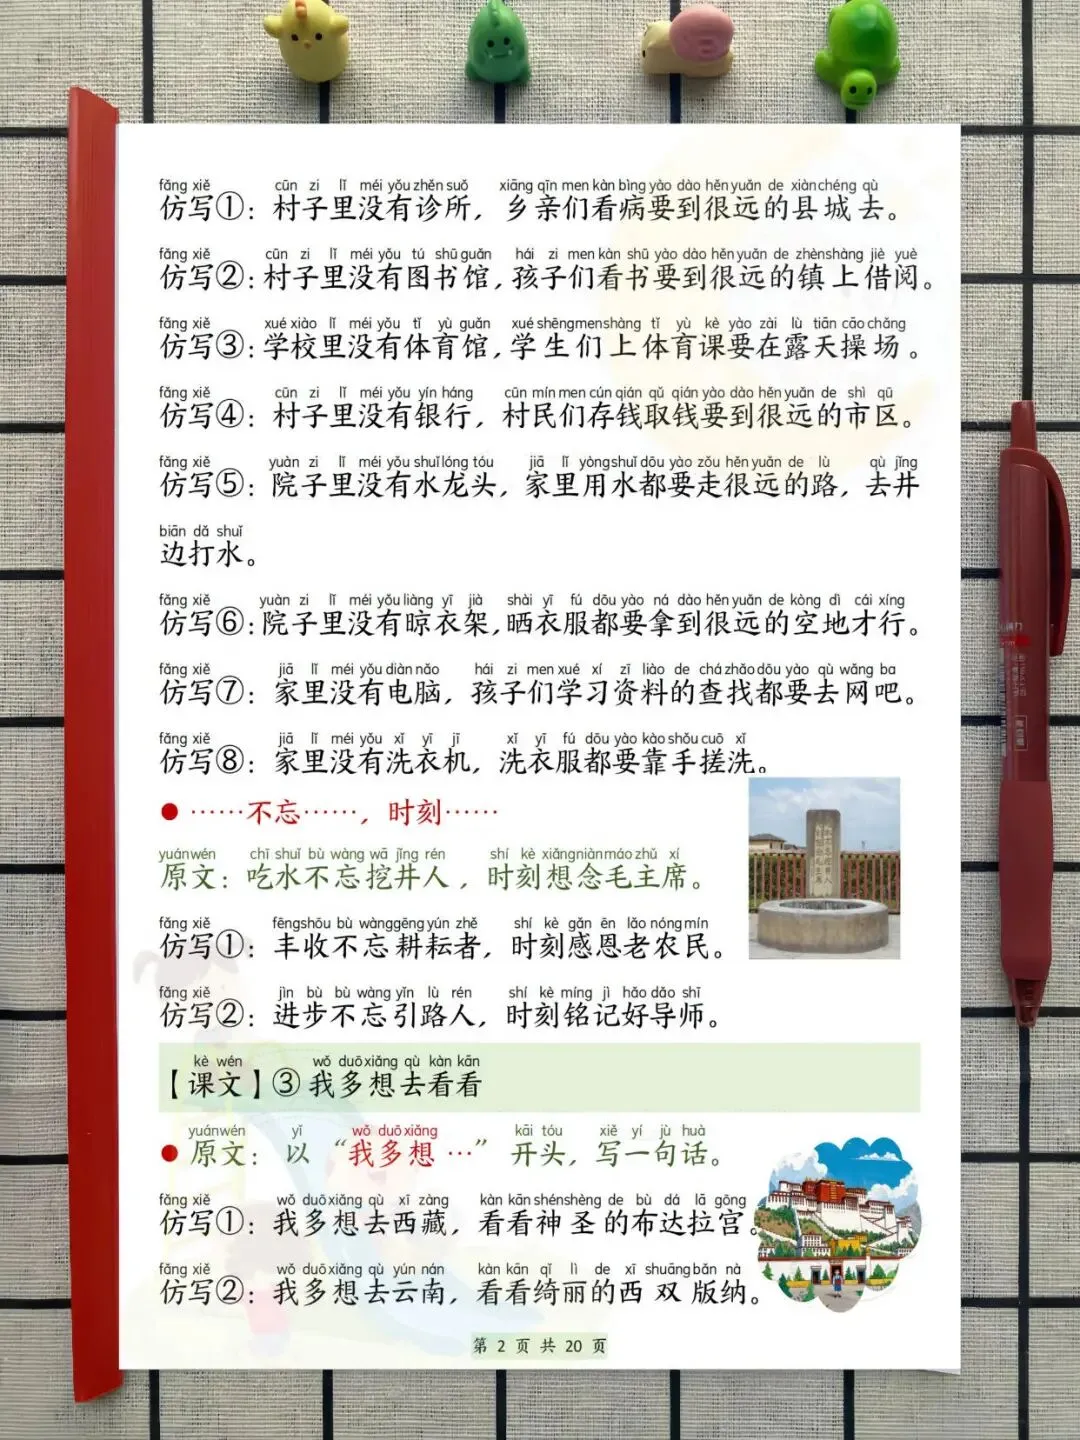 fǎng xiě cūn zi lǐ méi yǒu zhěn suǒ xiāng qīn men kàn bìng yào dào hěn yuǎn de xiàn chéng qù
仿写①：村子里没有诊所，乡亲们看病要到很远的县城去。
fǎng xiě cūn zi lǐ méi yǒu tú shū guǎn hái zi men kàn shū yào dào hěn yuǎn de zhèn shàng jiè yuè
仿写②：村子里没有图书馆，孩子们看书要到很远的镇上借阅。
fǎng xiě xué xiào lǐ méi yǒu tǐ yù guǎn xué shēng men shàng tǐ yù kè yào zài lù tiān cāo chǎng
仿写③：学校里没有体育馆，学生们上体育课要在露天操场。
fǎng xiě cūn zi lǐ méi yǒu yín háng cūn mín men cún qián qǔ qián yào dào hěn yuǎn de shì qū
仿写④：村子里没有银行，村民们存钱取钱要到很远的市区。
fǎng xiě yuàn zi lǐ méi yǒu shuǐ lóng tóu jiā lǐ yòng shuǐ dōu yào zǒu hěn yuǎn de lù qù jǐng
仿写⑤：院子里没有水龙头，家里用水都要走很远的路，去井
biān dǎ shuǐ
边打水。
fǎng xiě yuàn zi lǐ méi yǒu liàng yī jià shài yī fú dōu yào ná dào hěn yuǎn de kòng dì cái xíng
仿写⑥：院子里没有晾衣架，晒衣服都要拿到很远的空地才行。
fǎng xiě jiā lǐ méi yǒu diàn nǎo hái zi men xué xí zī liào de chá zhǎo dōu yào qù wǎng ba
仿写⑦：家里没有电脑，孩子们学习资料的查找都要去网吧。
fǎng xiě jiā lǐ méi yǒu xǐ yī jī xǐ yī fú dōu yào kào shǒu cuō xǐ
仿写⑧：家里没有洗衣机，洗衣服都要靠手搓洗。
● ……不忘……，时刻……
yuán wén chī shuǐ bù wàng wā jǐng rén shí kè xiǎng niàn máo zhǔ xí
原文：吃水不忘挖井人，时刻想念毛主席。
fǎng xiě fēng shōu bù wàng gēng yún zhě shí kè gǎn ēn lǎo nóng mín
仿写①：丰收不忘耕耘者，时刻感恩老农民。
fǎng xiě jìn bù bù wàng yǐn lù rén shí kè míng jì hǎo dǎo shī
仿写②：进步不忘引路人，时刻铭记好导师。
kè wén wǒ duō xiǎng qù kàn kān
【课文】③ 我多想去看看
yuán wén yǐ wǒ duō xiǎng kāi tóu xiě yí jù huà
● 原文：以“我多想…”开头，写一句话。
fǎng xiě wǒ duō xiǎng qù xī zàng kàn kān shén shèng de bù dá lā gōng
仿写①：我多想去西藏，看看神圣的布达拉宫。
fǎng xiě wǒ duō xiǎng qù yún nán kàn kān qǐ lì de xī shuāng bǎn nà
仿写②：我多想去云南，看看绮丽的西双版纳。
第 2 页 共 20 页